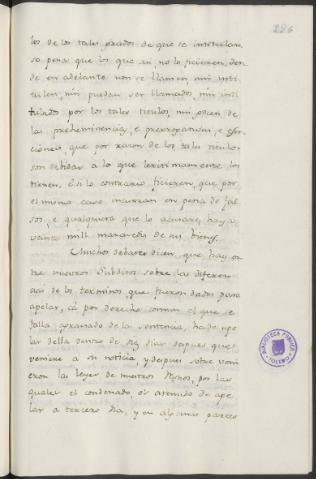 226
los de los tales grados de que se intitulan,
so pena que los que asi no lo ficieren, den-
de en adelante non se llamen, nin inti-
tulen, nin puedan ser llamados, nin inti-
tulados por los tales titulos, nin gocen de
las preheminencias, e prerrogativas, e esen-
ciones, que por razon de los tales titulos
son debidas a los que lexitimamente los
tienen, e si lo contrario ficieren, que por
el mismo caso incurran en pena de fal-
sos, e qualquiera que lo acusare, haya
veinte mill maravedis de sus bienes.
Muchos debates dicen, que hay en-
tre nuestros subditos sobre las diferen-
cias de los terminos que fueron dados para
apelar, cá por derecho comun el que se
falla agraviado de la sentencia, ha de ape-
lar della dentro de diez dias despues que
veniere a su noticia, y despues sobre vini-
eron las leyes de nuestros Reynos, por las
quales el condenado es tenido de ape-
lar a tercero dia, y en algunas partes
BIBLIOTECA PUBLICA
TOLEDO